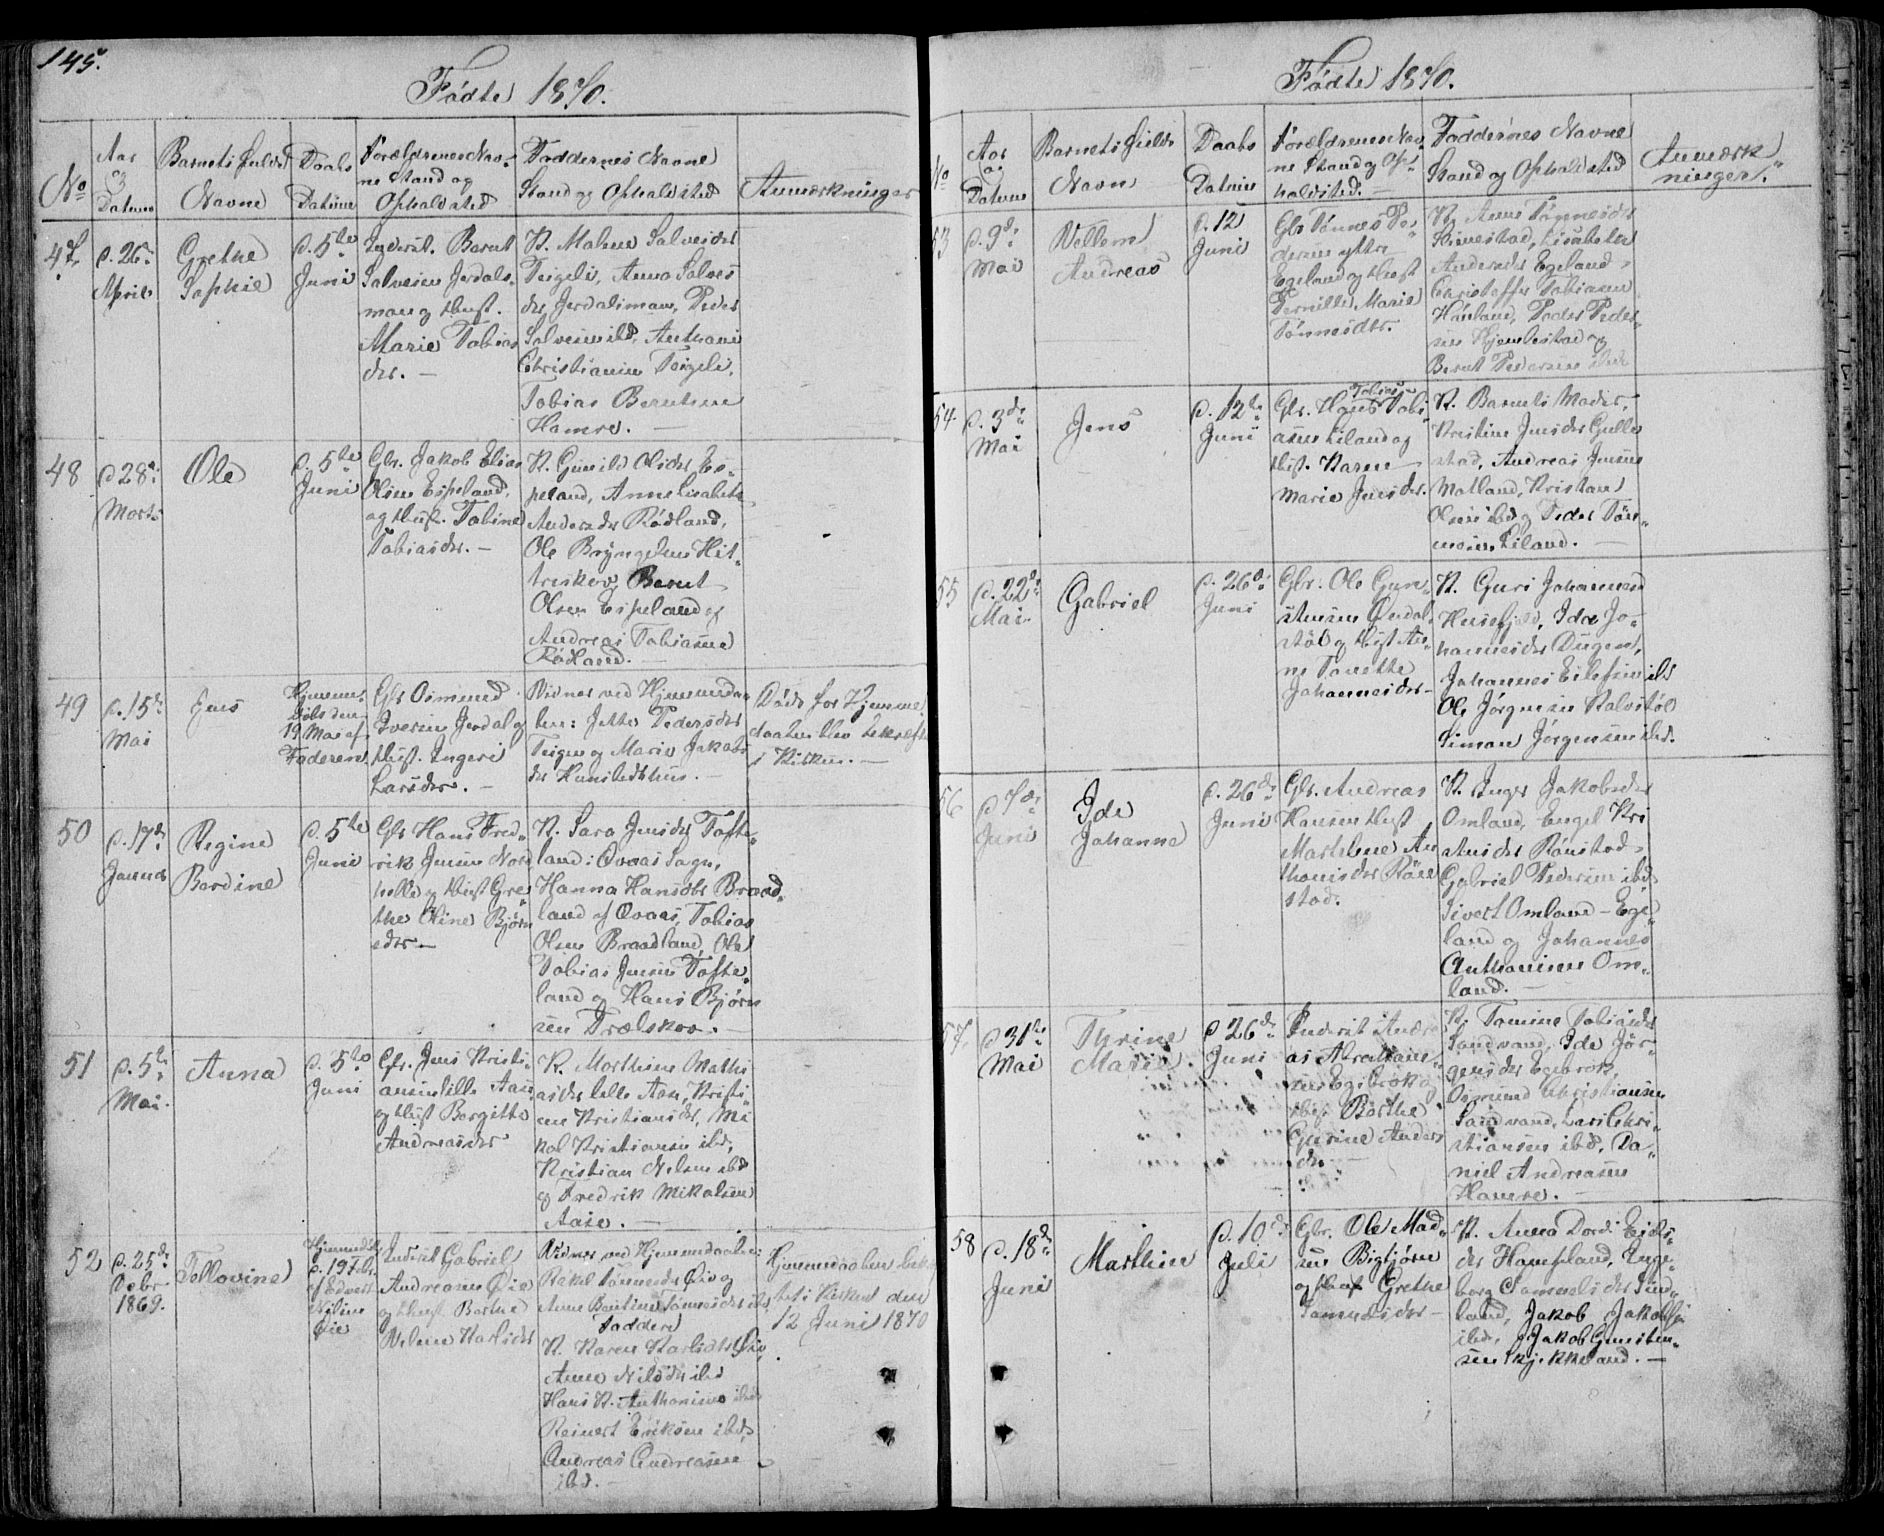 145.
Fødte 1870.
No
Aar og Datum
Barnets fulde Navne
Daabs Datum
Forældrenes Navne Stand og Opholdsted
Faddernes Navne Stand og Opholdsted
Anmærkninger
47.
d. 26de April
Grethe
Sophie
d. 5te
Juni
Inderst. Bernt
Salvesen Jerdals-
man og Hust.
Marie Tobias
der. -
K. Malene Salvesder
Teigeli, Anna Salves
der Jerdalsman, Peder
Salvesen ibd, Anthoni
Christiansen Teigeli,
Tobias Berntsen
Hamre. -
48
d 28de
Marts
Ole
d. 5te
Juni
Gbr. Jakob Elias
Olsen Espeland,
og Hust. Tobine
Tobiasder. -
K. Gunild Olsder Es-
peland, Anne Lisabeth
Andersder Rødland,
Ole Bryngelsen Hit-
terskov, Bernt
Olsen Espeland og
Andreas Tobiasen
Rødland. -
49
d. 15de
Mai
Jens
Hjemme-
døbt den
19 Mai af
Faderen
Gbr Osmund
Iversen Jerdal og
Hust. Ingeri
Larsder. -
Vidner ved Hjemmedaa-
ben: Jette Pedersder
Teigen og Marie Jakobs
der Hunsledshus. -
Døde før Hjemme-
daaben blev bekræftet
i Kirken. -
50
d. 17de
Januar
Regine
Berdine
d. 5te
Juni
Gbr Hans Fred-
rik Jensen Nord
helle og Hust Gre-
the Oline Bjørn
sder -
K. Sara Jensder Tofte-
land: Ovaas Sogn,
Hanna Hansdbr Braad-
land af Ovaas, Tobias
Olsen Braadland, Ole
Tobias Jensen Tofte-
land og Hans Bjørn
sen Trælskov. -
51
d. 5te
Mai.
Anna
d. 5te
Juni
Gbr. Jens Kristi-
ansen lille Aas
og Hust Bergitte
Andreasder
K. Marthine Mathi
asder lille Aas, Kristi-
ne Kristiansder, Mi
kal Kristiansen ibd,
Kristian Nelsen ibd
og Fredrik Mikalsen
Aase. -
52
d. 25de
Debr
1869.
Tellovine
Hjemmedøbt
d. 19 Febr.
af Edvert
Nilsen
Øie
Inderst Gabriel
Andreasen Øie
og Hust Berthe
Helene Karlsder
Vidner ved Hjemmedaaben:
Rakel Tønnesder Øie og
Anne Bentine Tønnesder ibd,
Faddere
K. Karen Karlsder Øie,
Anne Nilsder ibd
Hans K. Anthonisen ibd
Reinert Eriksen ibd,
Andreas Andreasen
ibd. -
Hjemmedaaben bekræf
tet i Kirken den
12 Juni 1870
Fødte 1870.
No
Aar
og
Datum
Barnets fulde
Navn
Daabs
Datum
Forældrenes Nav-
ne Stand og Op-
holdsted. -
Faddernes Navne
Stand og Opholdsted
Anmærk-
ninger.
53
d. 9de
Mai
Vellem
Andreas
d. 12
Juni
Gbr Tønnes Pe-
dersen yttre
Egeland og Hust
Pernille Marie
Tønnesder.
K. Anne Tønnesder
Stinestad, Lisabeth
Andersder Egeland
Christoffer Tobiasen
Hauland, Peder Peder-
sen Hjemlestad og
Bernt Pedersen ibd
54
d. 3de
Mai
Jens
d. 12te
Juni
Gbr. Hans Tobi-
asen Eiland og
Hust. Karen
Marie Jensder.
K. Barnets Moder,
Kristine Jensder Gulle
stad, Andreas Jensen
Motland, Kristian
Olsen ibd og Peder Tøn-
nesen Eiland. -
55
d. 22de
Mai
Gabriel
d. 26de
Juni
Gbr. Ole Gun-
stensen Omdal
støl og Hust An-
ne Tonette
Johannesder -
K. Guri Johannesd
Husefjeld, Ida Jo-
hannesder Dugan,
Johannes Eilefsen ibd
Ole Jørgensen Kalvstøl
Simon Jørgensen ibd.
56
d 7de
Juni
Ide
Johanna
d. 26de
Juni
Gbr. Andreas
Hansen Hust
Marthene An
thonisder Røne
stad.
K. Inger Jakobsder
Omland, Engel Kri
stensder Rønstad
Gabriel Pedersen ibd
Sivert Omland - Ege-
land og Johannes
Anthonisen Om-
land. -
57.
d 31te
Mai
Thrine
Marie
d 26de
Juni
Inderst Andre
as Abraham-
sen Egebrok og
Hust Børthe
Gurine Anders
der -
K. Tomine Tobiasder
Sandvand, Ide Jør-
gensder Egebrok,
Osmund Christiansen
Sandvand, Lars Chri-
stiansen ibd, Da-
niel Andreasen
Hamre. -
58
d. 18de
Juni
Marthin
d. 10de
Juli
Gbr. Ole Mad-
sen Bigtjørn
og Hust Grethe
Samuelsder -
K. Anna Dordi Eids
der Hampland, Inge-
borg Samuelsder Sind-
land, Jakob Jakobsen
ibd, Jakob Gunsten-
sen Skjekkeland. -